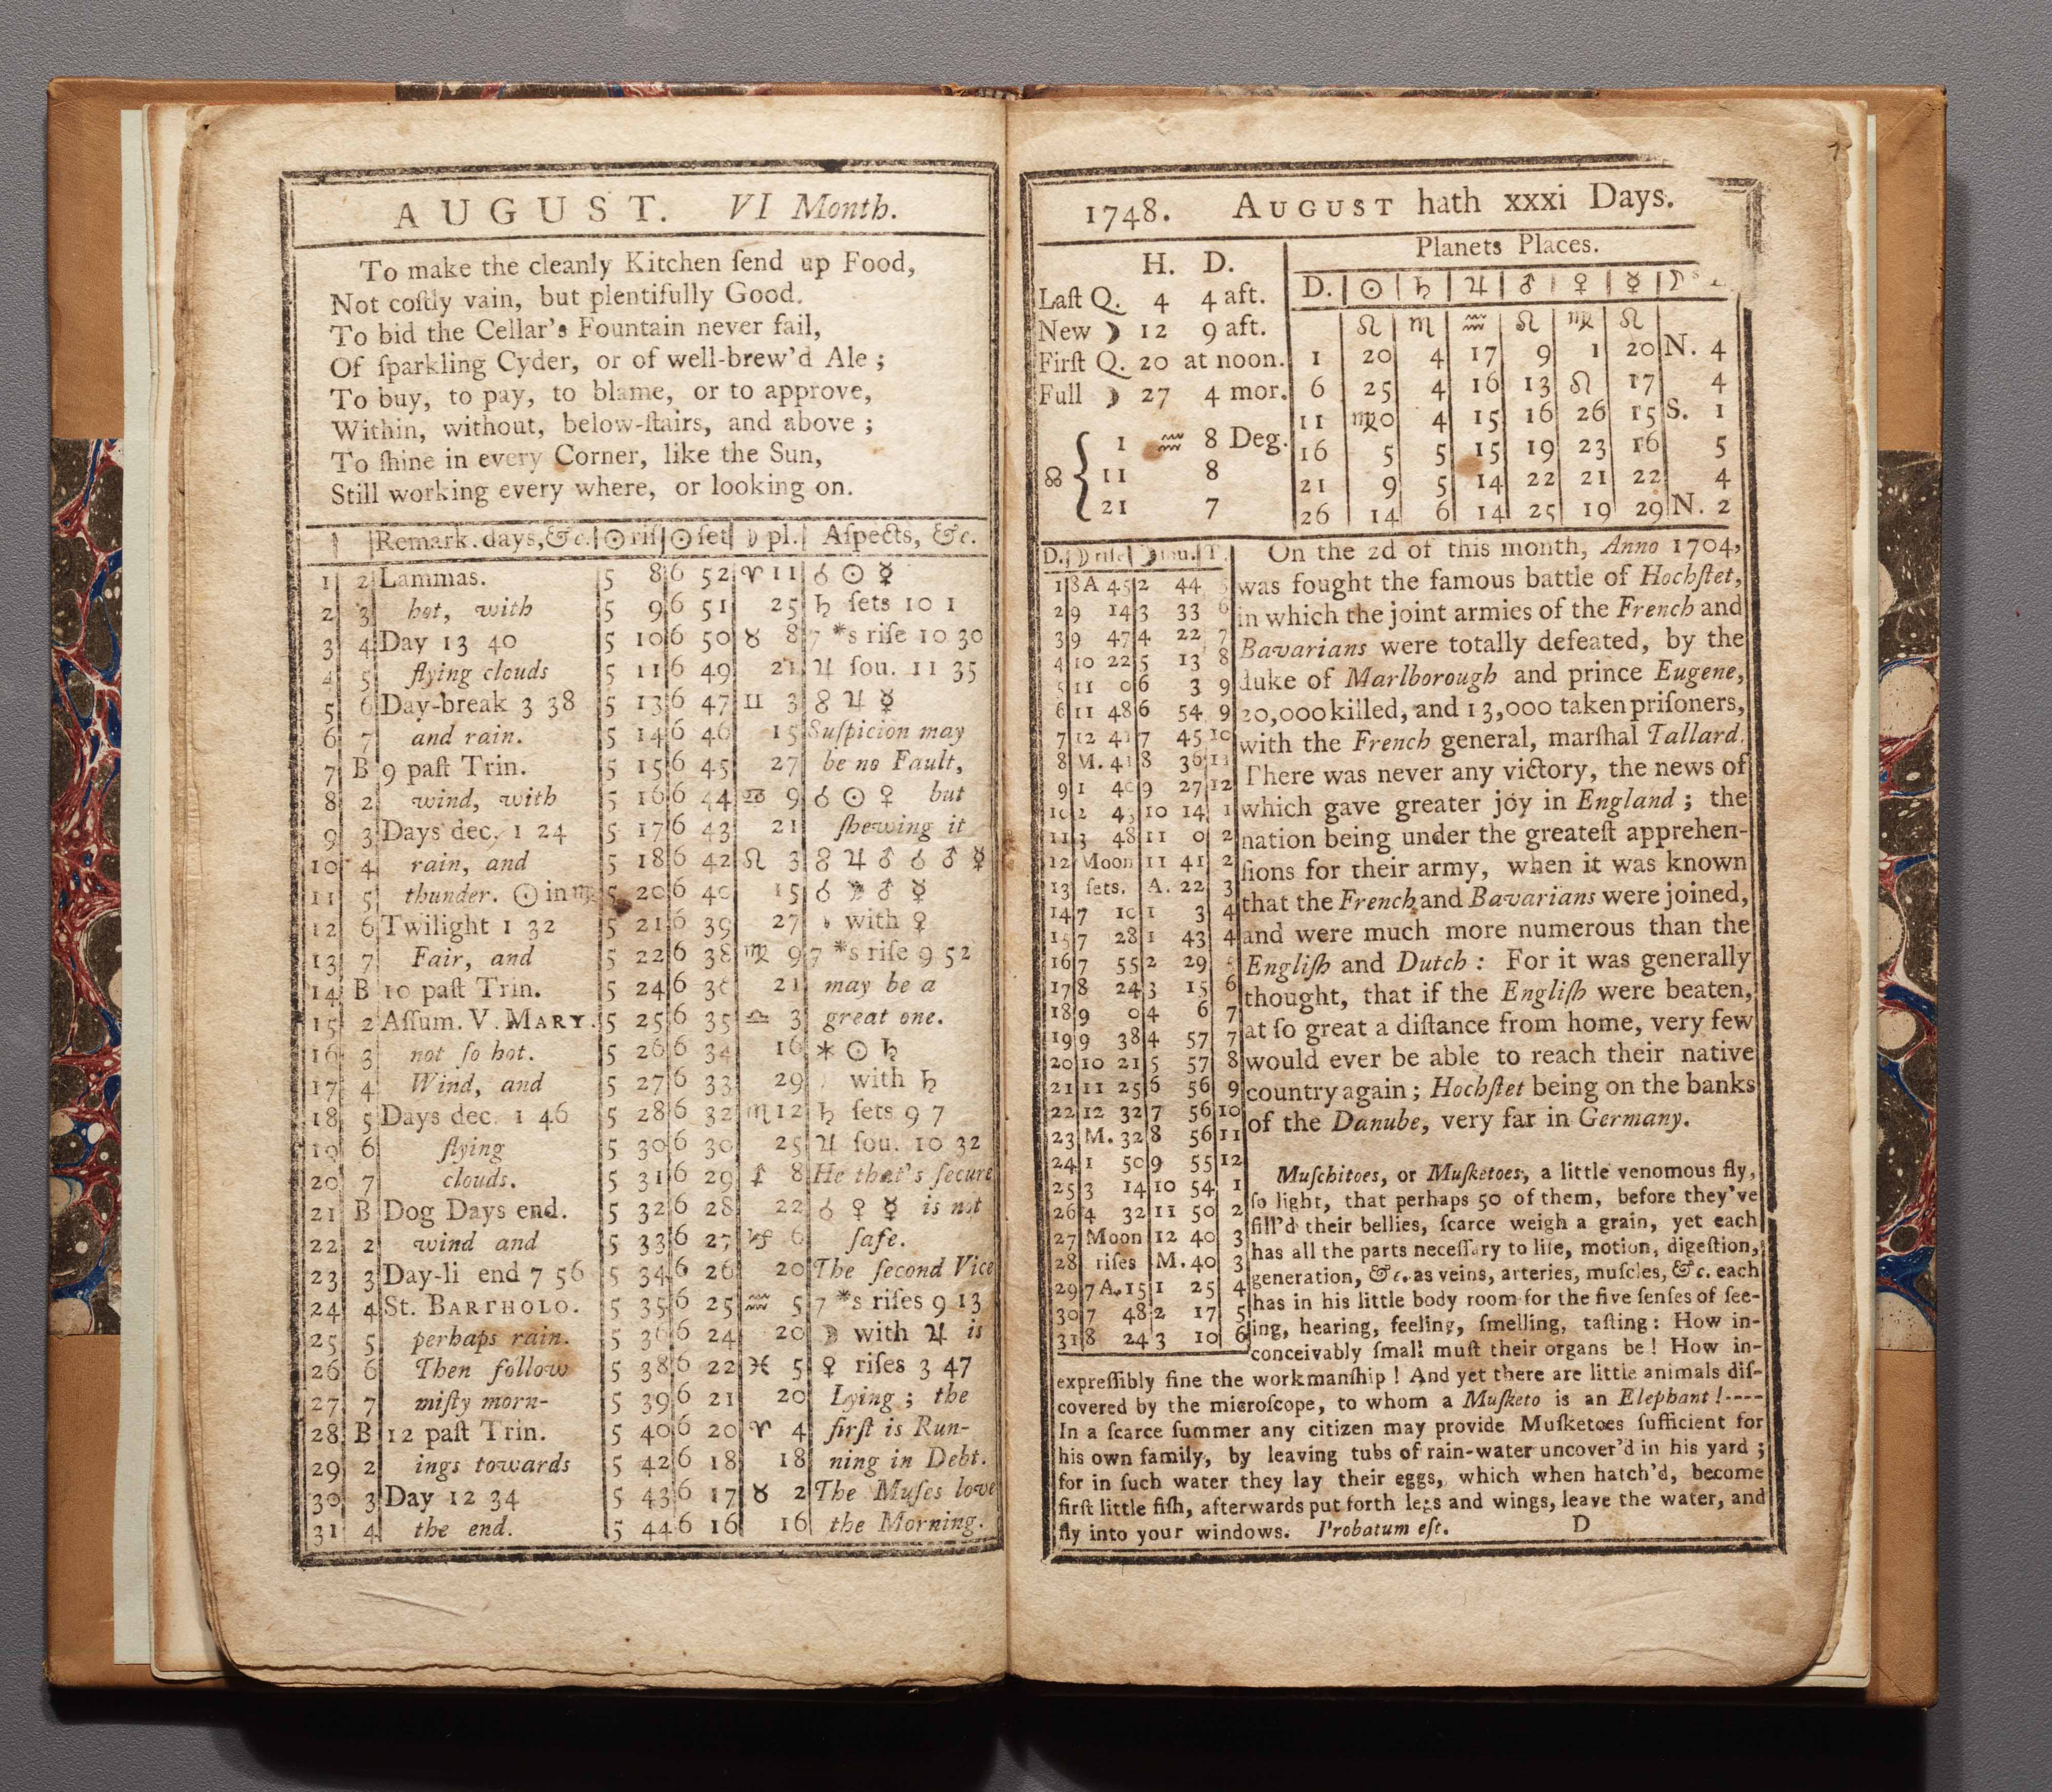 AUGUST. VI Month.
To make the cleanly Kitchen ſend up Food,
Not coſtly vain, but plentifully Good.
To bid the Cellar's Fountain never fail,
Of ſparkling Cyder, or of well-brew'd Ale ;
To buy, to pay, to blame, or to approve,
Within, without, below-ſtairs, and above ;
To ſhine in every Corner, like the Sun,
Still working every where, or looking on.
Remark. days, &c. ☉ riſ ☉ ſet ☽ pl. Aſpects, &c.
1 2 Lammas. 5 8 6 52 ♈ 11 ☌ ☉ ☿
2 3 hot, with 5 9 6 51 25 ♄ ſets 10 1
3 4 Day 13 40 5 10 6 50 ♉ 8 7 *s riſe 10 30
4 5 flying clouds 5 11 6 49 21 ♃ ſou. 11 35
5 6 Day-break 3 38 5 13 6 47 ♊ 3 ☍ ♃ ☿
6 7 and rain. 5 14 6 46 15 Suſpicion may
7 B 9 paſt Trin. 5 15 6 45 27 be no Fault,
8 2 wind, with 5 16 6 44 ♋ 9 ☌ ☉ ♀ but
9 3 Days dec. 1 24 5 17 6 43 21 ſhewing it
10 4 rain, and 5 18 6 42 ♌ 3 ☍ ♃ ♂ ☌ ♂ ☿
11 5 thunder. ☉ in ♍ 5 20 6 40 15 ☌ ☽ ♂ ☿
12 6 Twilight 1 32 5 21 6 39 27 ☽ with ♀
13 7 Fair, and 5 22 6 38 ♍ 9 7 *s riſe 9 52
14 B 10 paſt Trin. 5 24 6 36 21 may be a
15 2 Aſſum. V. MARY. 5 25 6 35 ♎ 3 great one.
16 3 not ſo hot. 5 26 6 34 16 ⚹ ☉ ♄
17 4 Wind, and 5 27 6 33 29 ☽ with ♄
18 5 Days dec. 1 46 5 28 6 32 ♏ 12 ♄ ſets 9 7
19 6 flying 5 30 6 30 25 ♃ ſou. 10 32
20 7 clouds. 5 31 6 29 ♐ 8 He that's ſecure
21 B Dog Days end. 5 32 6 28 22 ☌ ♀ ☿ is not
22 2 wind and 5 33 6 27 ♑ 6 ſafe.
23 3 Day-li end 7 56 5 34 6 26 20 The ſecond Vice
24 4 St. BARTHOLO. 5 35 6 25 ♒ 5 7 *s riſes 9 13
25 5 perhaps rain. 5 36 6 24 20 ☽ with ♃ is
26 6 Then follow 5 38 6 22 ♓ 5 ♀ riſes 3 47
27 7 miſty morn- 5 39 6 21 20 Lying ; the
28 B 12 paſt Trin. 5 40 6 20 ♈ 4 firſt is Run-
29 2 ings towards 5 42 6 18 18 ning in Debt.
30 3 Day 12 34 5 43 6 17 ♉ 2 The Muſes love
31 4 the end. 5 44 6 16 16 the Morning.
1748. AUGUST hath xxxi Days.
H. D.
Laſt Q. 4 4 aft.
New ☽ 12 9 aft.
Firſt Q. 20 at noon.
Full ☽ 27 4 mor.
☊ { 1 ♒ 8 Deg.
11 8
21 7
Planets Places.
D. ☉ ♄ ♃ ♂ ♀ ☿ ☽
♌ ♏ ♒ ♌ ♍ ♌
1 20 4 17 9 1 20 N. 4
6 25 4 16 13 ♌ 17 4
11 ♍0 4 15 16 26 15 S. 1
16 5 5 15 19 23 16 5
21 9 5 14 22 21 22 4
26 14 6 14 25 19 29 N. 2
D. ☽ riſe ☽ ſou. T.
1 8A 45 2 44
2 9 14 3 33 6
3 9 47 4 22 7
4 10 22 5 13 8
5 11 0 6 3 9
6 11 48 6 54 9
7 12 41 7 45 10
8 M. 41 8 36 11
9 1 40 9 27 12
10 2 43 10 14 1
11 3 48 11 0 2
12 Moon 11 41 2
13 ſets. A. 22 3
14 7 10 1 3 4
15 7 28 1 43 4
16 7 55 2 29 5
17 8 24 3 15 6
18 9 0 4 6 7
19 9 38 4 57 7
20 10 21 5 57 8
21 11 25 6 56 9
22 12 32 7 56 10
23 M. 32 8 56 11
24 1 50 9 55 12
25 3 14 10 54 1
26 4 32 11 50 2
27 Moon 12 40 3
28 riſes M. 40 3
29 7A.15 1 25 4
30 7 48 2 17 5
31 8 24 3 10 6
On the 2d of this month, Anno 1704,
was fought the famous battle of Hochſtet,
in which the joint armies of the French and
Bavarians were totally defeated, by the
duke of Marlborough and prince Eugene,
20,000 killed, and 13,000 taken priſoners,
with the French general, marſhal Tallard.
There was never any victory, the news of
which gave greater joy in England ; the
nation being under the greateſt apprehen-
ſions for their army, when it was known
that the French and Bavarians were joined,
and were much more numerous than the
Engliſh and Dutch : For it was generally
thought, that if the Engliſh were beaten,
at ſo great a diſtance from home, very few
would ever be able to reach their native
country again ; Hochſtet being on the banks
of the Danube, very far in Germany.
Muſchitoes, or Muſketoes, a little venomous fly,
ſo light, that perhaps 50 of them, before they've
fill'd their bellies, ſcarce weigh a grain, yet each
has all the parts neceſſary to life, motion, digeſtion,
generation, &c. as veins, arteries, muſcles, &c. each
has in his little body room for the five ſenſes of ſee-
ing, hearing, feeling, ſmelling, taſting: How in-
conceivably ſmall muſt their organs be ! How in-
expreſſibly fine the workmanſhip ! And yet there are little animals diſ-
covered by the microſcope, to whom a Muſketo is an Elephant !----
In a ſcarce ſummer any citizen may provide Muſketoes ſufficient for
his own family, by leaving tubs of rain-water uncover'd in his yard ;
for in ſuch water they lay their eggs, which when hatch'd, become
firſt little fiſh, afterwards put forth legs and wings, leave the water, and
fly into your windows. Probatum eſt. D